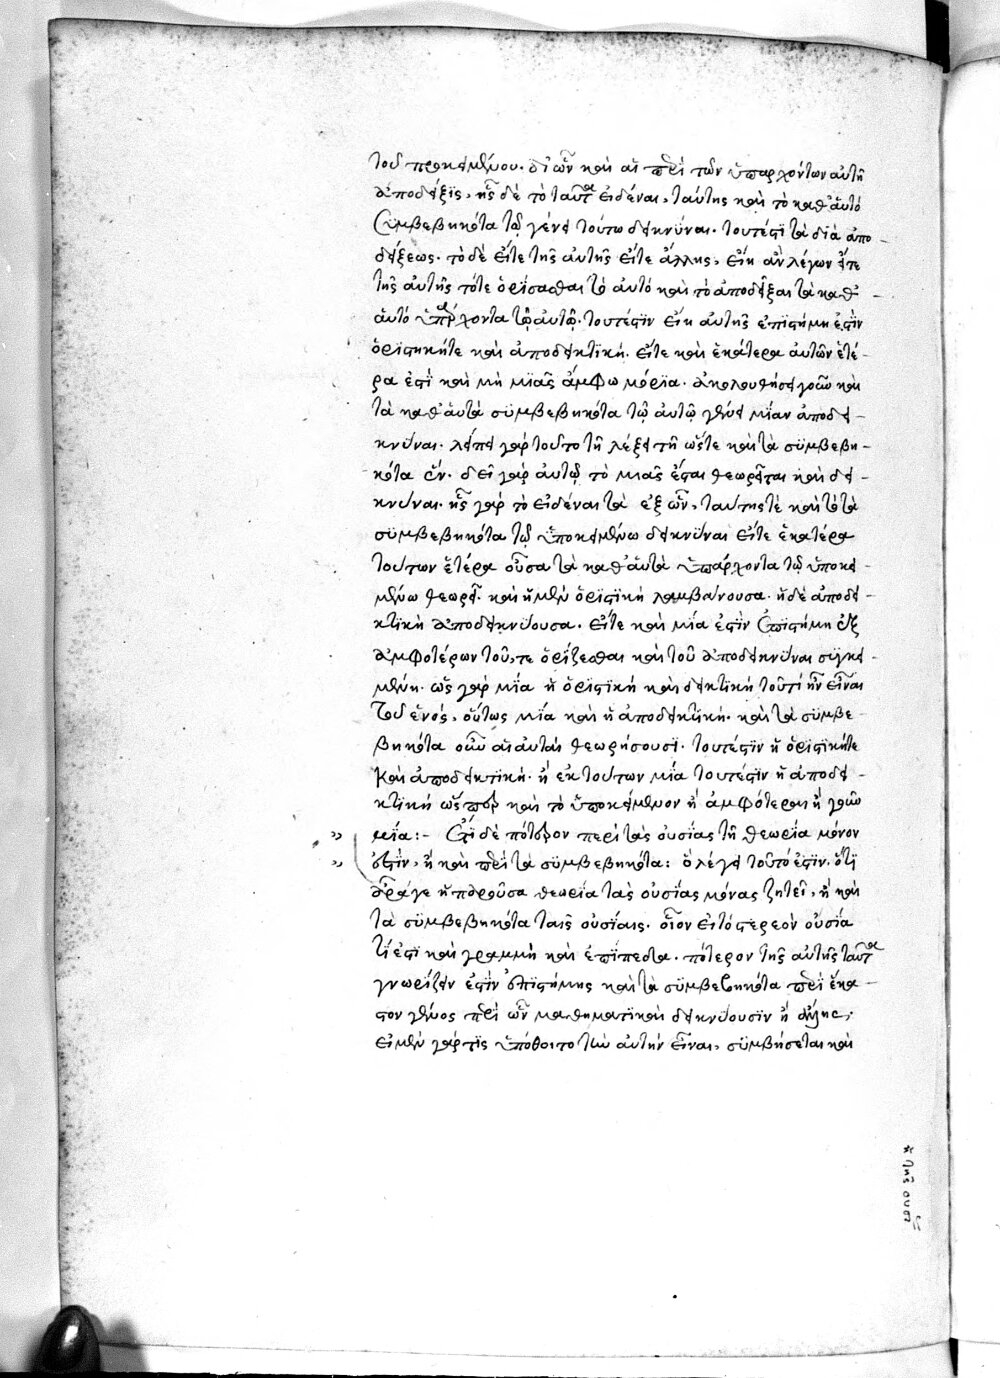 τοῦ προκειμένου. δι' ὧν καὶ αἱ περὶ τῶν ὑπαρχόντων αὐτῆ
ἀποδείξϊς, ἧς δὲ τὸ ταῦτα εἰδέναι, ταύτης καὶ τὸ καθ' αὑτὸ
συμβεβηκότα τῶ γένει τούτω δεικνύναι. τουτέστι τὰ διὰ ἀπο -
δείξεως. τὸ δὲ εἴτε τῆς αὐτῆς εἴτε ἄλλης, εἴη ἂν λέγων εἴτε
τῆς αὐτῆς τότε ὁρίσασθαι τὸ αὐτὸ καὶ τὸ ἀποδεῖξαι τὰ καθ' -
αὑτὸ ὑπάρχοντα τῶ αὐτῶ. τουτέστϊν εἴη αὐτῆς ἐπιστήμη ἐστὶν
ὁριστική τε καὶ ἀποδεικτϊκή. εἴτε καὶ ἑκάτερα αὐτῶν ἑτέ -
ρα ἐστὶ καὶ μὴ μϊᾶς ἄμφω μόρϊα. ἀκολουθήσει γοῦν καὶ
τὰ καθ' αὑτὰ σϋμβεβηκότα τῶ αὐτῶ γένει μίαν ἀποδει -
κνύναι. λείπει γὰρ τοῦτο τῆ λέξει τῆ ὥστε καὶ τὰ σϋμβεβη -
κότα ἕν. δεῖ γὰρ αὐτῶ τὸ μιᾶς ἔσται θεωρεῖται καὶ δει -
κνύναι. ἧς γὰρ τὸ εἰδέναι τὰ ἐξ ὧν, ταύτης τὲ καὶ τὸ τὰ
σϋμβεβηκότα τῶ ὑποκειμένω δεικνύναι εἴτε ἑκατέρα
τούτων ἑτέρα οὖσα τὰ καθ' αὑτὰ ὑπάρχοντα τῶ ὑποκει -
μένω θεωρεῖ. καὶ ἡ μὲν ὁρϊστϊκὴ λαμβάνουσα. ἡ δὲ ἀποδει -
κτϊκὴ ἀποδεικνύουσα. εἴτε καὶ μία ἐστὶν ἐπϊστήμη ἐξ
ἀμφοτέρων τοῦ, τε ὁρίζεσθαι καὶ τοῦ ἀποδεικνύναι σϋγκει -
μένη. ὡς γὰρ μία ἡ ὁρϊστϊκὴ καὶ δεικτϊκὴ τοῦ τί ἦν εἶναι
τοῦ ἑνός, οὕτως μία καὶ ἡ ἀποδεικτϊκή. καὶ τὰ σϋμβε -
βηκότα οὖν αἱ αὐταὶ θεωρήσουσϊ. τουτέστϊν ἡ ὁρϊστϊκή τε
καὶ ἀποδεικτϊκή. ἢ ἐκ τούτων μία τουτέστϊν ἡ ἀποδει -
κτϊκὴ ὥσπερ καὶ τὸ ὑποκείμενον ἢ ἀμφότεραι ἢ γοῦν
μία :- Ἔτϊ δὲ πότερον περὶ τὰς οὐσίας τῆ θεωρία μόνον
ἐστϊν, ἢ καὶ περὶ τὰ σϋμβεβηκότα : ὁ λέγει τοῦτό ἐστϊν. ὅτϊ
ἆράγε ἡ παροῦσα θεωρία τὰς οὐσίας μόνας ζητεῖ, ἢ καὶ
τὰ σϋμβεβηκότα ταῖς οὐσίαις. οἷον εἰ τὸ στερεὸν οὐσία
τίς ἐστι καὶ γραμμὴ καὶ ἐπίπεδα. πότερον τῆς αὐτῆς ταῦτα
γνωρίζειν ἐστὶν ἐπϊστήμης καὶ τὰ σϋμβεβηκότα περὶ ἕκα -
στον γένος περὶ ὧν μαθηματϊκαὶ δεικνύουσϊν ἢ ἄλλης.
εἰ μὲν γάρ τϊς ὑπόθοιτο τὴν αὐτὴν εἶναι, σϋμβήσεται καὶ
ἢ τῆς οὐσί